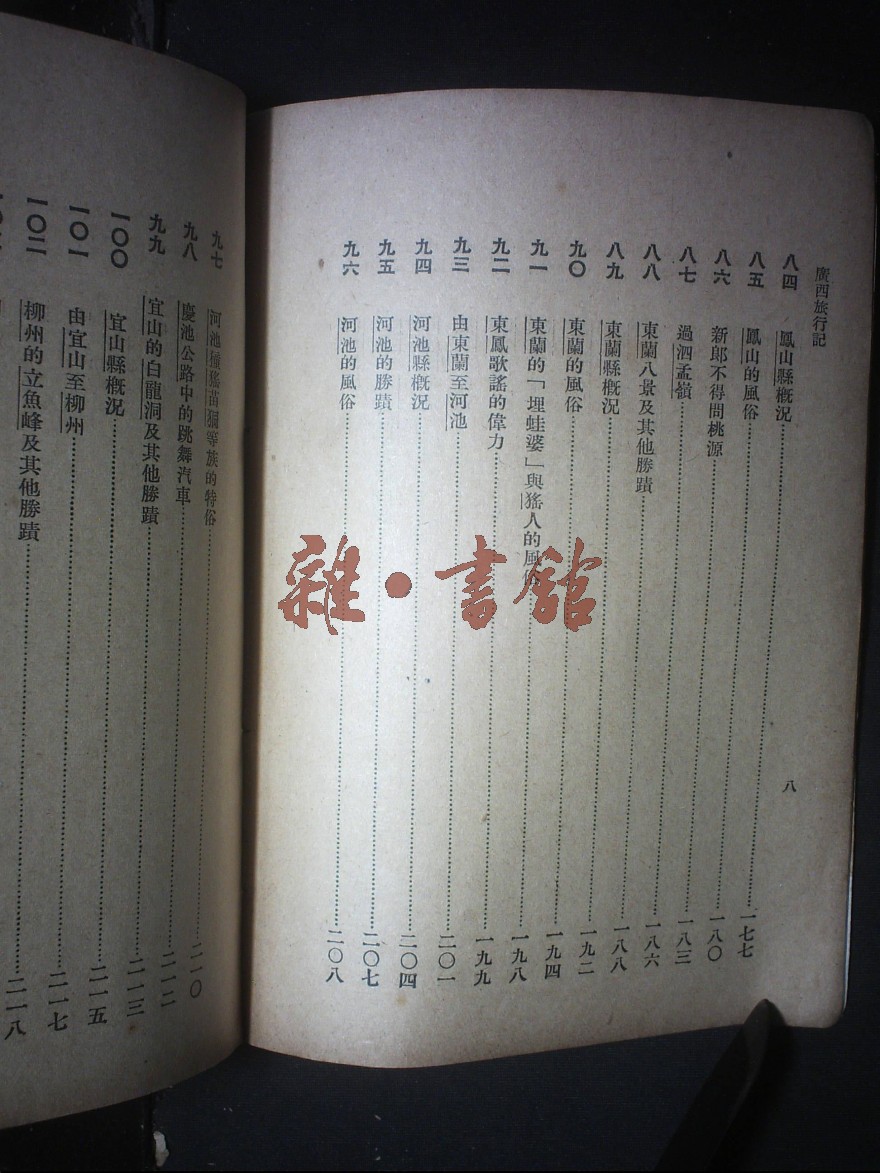 廣西旅行記
八四 鳳山縣概況 一七七
八五 鳳山的風俗 一八〇
八六 新郎不得問桃源 一八三
八七 過泗孟嶺 一八六
八八 東蘭八景及其他勝蹟 一八八
八九 東蘭縣概況 一九二
九〇 東蘭的風俗 一九四
九一 東蘭的「埋蛙婆」與猺人的風俗 一九八
九二 東鳳歌謠的偉力 一九九
九三 由東蘭至河池 二〇一
九四 河池縣概況 二〇四
九五 河池的勝蹟 二〇七
九六 河池的風俗 二〇八
八
九七 河池獞猺苗等族的特俗 二一〇
九八 慶池公路中的跳舞汽車 二一二
九九 宜山的白龍洞及其他勝蹟 二一三
一〇〇 宜山縣概況 二一五
一〇一 由宜山至柳州 二一七
一〇二 柳州的立魚峰及其他勝蹟 二一八
雜·書館